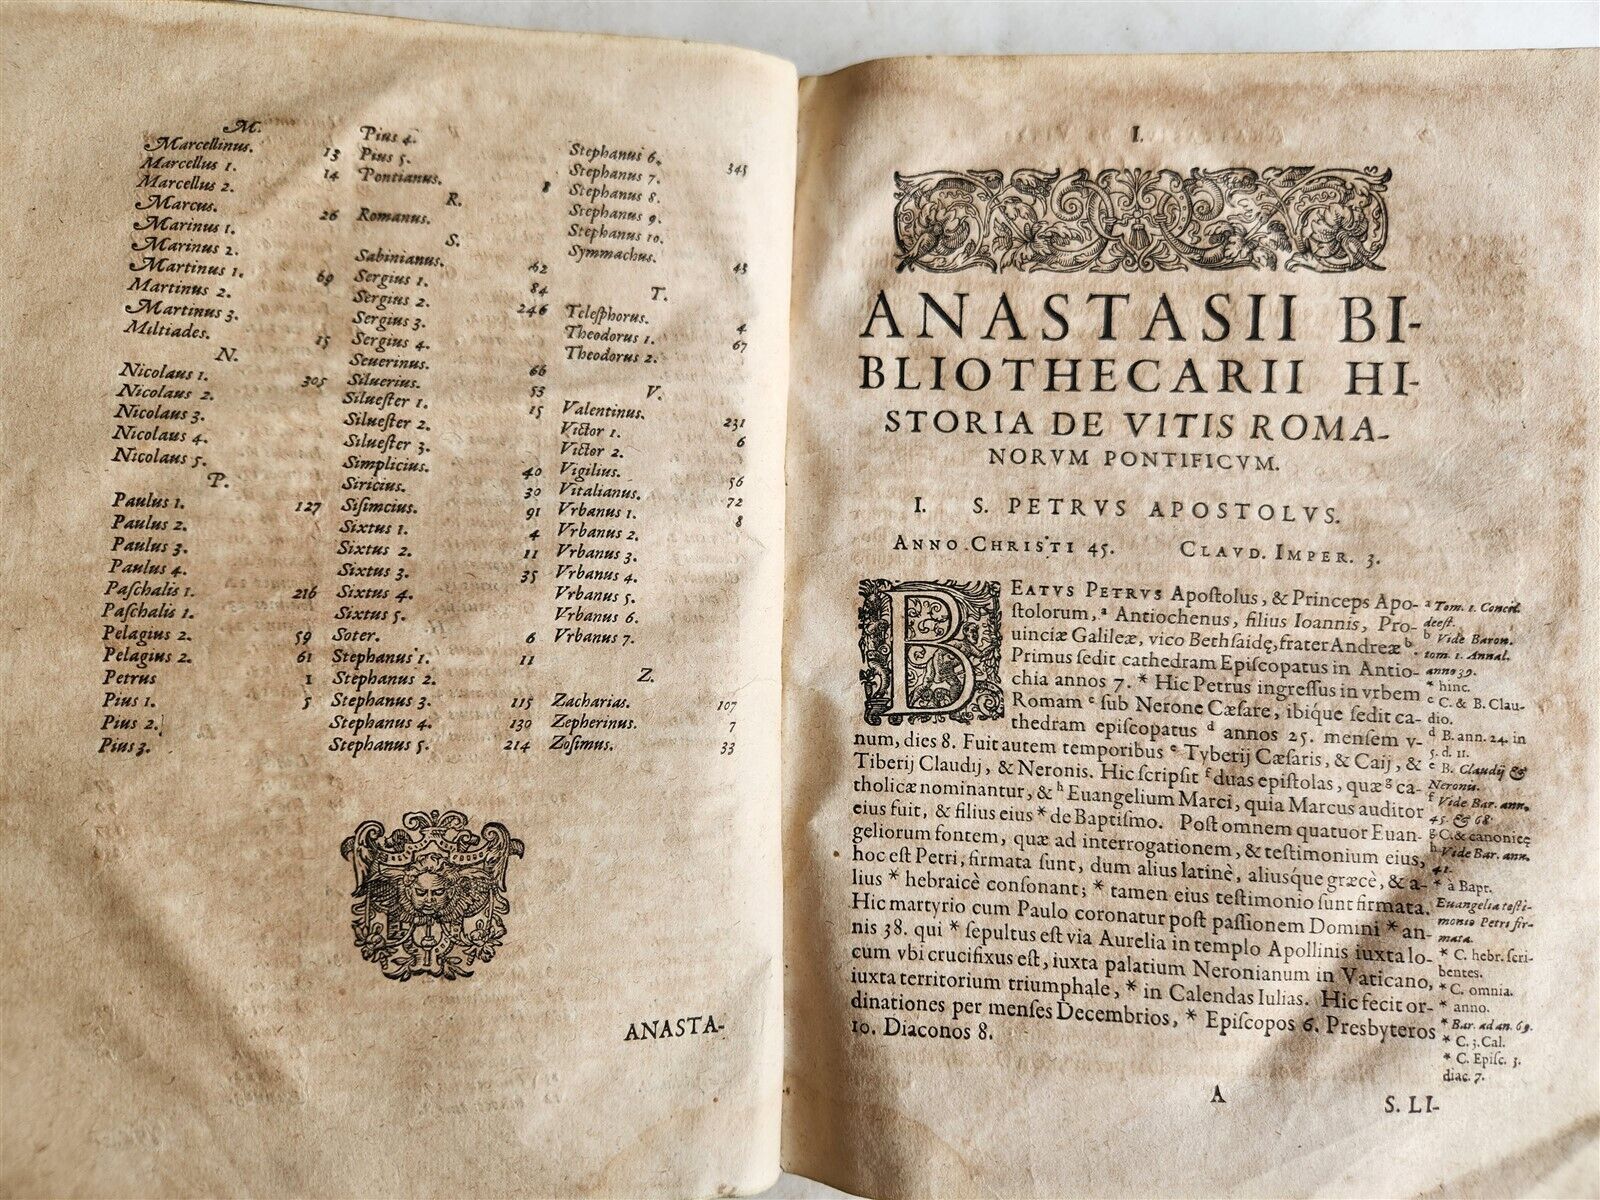 M.
Marcellinus. 13
Marcellus 1. 14
Marcellus 2.
Marcus. 26
Marinus 1.
Marinus 2.
Martinus 1. 69
Martinus 2.
Martinus 3.
Miltiades. 15
N.
Nicolaus 1. 305
Nicolaus 2.
Nicolaus 3.
Nicolaus 4.
Nicolaus 5.
P.
Paulus 1. 127
Paulus 2.
Paulus 3.
Paulus 4.
Paſchalis 1. 216
Paſchalis 1.
Pelagius 2. 59
Pelagius 2. 61
Petrus 1
Pius 1. 5
Pius 2.
Pius 3.
Pius 4.
Pius 5.
Pontianus. 8
R.
Romanus.
S.
Sabinianus. 62
Sergius 1. 84
Sergius 2. 246
Sergius 3.
Sergius 4.
Seuerinus. 66
Siluerius. 53
Silueſter 1. 15
Silueſter 2.
Silueſter 3.
Simplicius. 40
Siricius. 30
Siſimcius. 91
Sixtus 1. 4
Sixtus 2. 11
Sixtus 3. 35
Sixtus 4.
Sixtus 5.
Soter. 6
Stephanus 1. 11
Stephanus 2.
Stephanus 3. 115
Stephanus 4. 130
Stephanus 5. 214
Stephanus 6. 345
Stephanus 7.
Stephanus 8.
Stephanus 9.
Stephanus 10.
Symmachus. 43
T.
Teleſphorus. 4
Theodorus 1. 67
Theodorus 2.
V.
Valentinus. 231
Victor 1. 6
Victor 2.
Vigilius. 56
Vitalianus. 72
Vrbanus 1. 8
Vrbanus 2.
Vrbanus 3.
Vrbanus 4.
Vrbanus 5.
Vrbanus 6.
Vrbanus 7.
Z.
Zacharias. 107
Zepherinus. 7
Zoſimus. 33
ANASTA-
I.
ANASTASII BI-
BLIOTHECARII HI-
STORIA DE VITIS ROMA-
NORVM PONTIFICVM.
I. S. PETRVS APOSTOLVS.
ANNO CHRISTI 45. CLAVD. IMPER. 3.
BEATVS PETRVS Apoſtolus, & Princeps Apo-
ſtolorum, ª Antiochenus, filius Ioannis, Pro-
uinciæ Galileæ, vico Bethſaidę, frater Andreæ ᵇ.
Primus ſedit cathedram Epiſcopatus in Antio-
chia annos 7. * Hic Petrus ingreſſus in vrbem
Romam ᶜ ſub Nerone Cæſare, ibique ſedit ca-
thedram epiſcopatus ᵈ annos 25. menſem v-
num, dies 8. Fuit autem temporibus ᵉ Tyberij Cæſaris, & Caij, &
Tiberij Claudij, & Neronis. Hic ſcripſit ᶠ duas epiſtolas, quæ ᵍ ca-
tholicæ nominantur, & ʰ Euangelium Marci, quia Marcus auditor
eius fuit, & filius eius * de Baptiſmo. Poſt omnem quatuor Euan-
geliorum fontem, quæ ad interrogationem, & teſtimonium eius,
hoc eſt Petri, firmata ſunt, dum alius latinè, aliuſque græcè, & a-
lius * hebraicè conſonant; * tamen eius teſtimonio ſunt firmata.
Hic martyrio cum Paulo coronatur poſt paſſionem Domini * an-
nis 38. qui * ſepultus eſt via Aurelia in templo Apollinis iuxta lo-
cum vbi crucifixus eſt, iuxta palatium Neronianum in Vaticano,
iuxta territorium triumphale, * in Calendas Iulias. Hic fecit or-
dinationes per menſes Decembrios, * Epiſcopos 6. Presbyteros
10. Diaconos 8.
ª Tom. 1. Concil.
deeſt.
ᵇ Vide Baron.
tom. 1. Annal.
anno 39.
* hinc.
ᶜ C. & B. Clau-
dio.
ᵈ B. ann. 24. in
5. d. 11.
ᵉ B. Claudij &
Neronis.
ᶠ Vide Bar. ann.
45. & 68.
ᵍ C. & canonicę
ʰ Vide Bar. ann.
41.
* à Bapt.
Euangelia teſti-
monio Petri fir-
mata.
* C. hebr. ſcri-
bentes.
* C. omnia.
* anno.
* Bar. ad an. 69.
* C. 3. Cal.
* C. Epiſc. 3.
diac. 7.
A
S. LI-